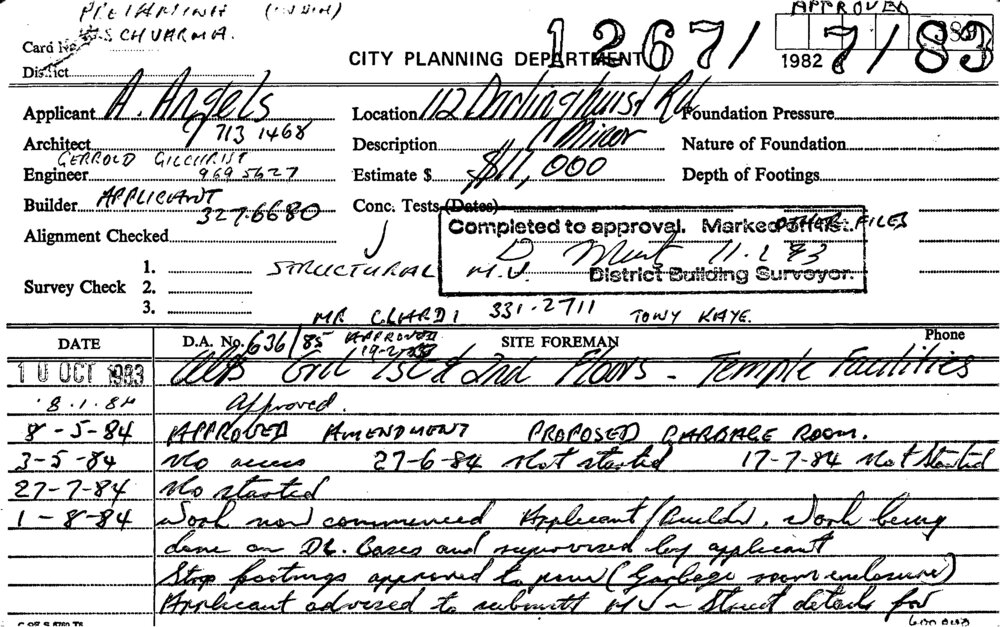 (INDIA) APPROVED
Card No. SCHVARMA.
1267/ 7/83
CITY PLANNING DEPARTMENT 1982
District
Applicant A. Angels Location 112 Darlinghurst Rd Foundation Pressure
Architect 713 1468 Description Minor Nature of Foundation
GERROLD GILCHRIST
Engineer 969 5627 Estimate $ $11,000 Depth of Footings
Builder APPLICANT 327.6680 Conc. Tests (Dates)
Completed to approval. Marked off list. OTHER FILES
Alignment Checked D 11.2.83
STRUCTURAL M.V. District Building Surveyor.
1.
Survey Check 2.
3.
MR CLARDI 331.2711 TONY KAYE.
DATE D.A. No. 636/85 APPROVED SITE FOREMAN Phone
10 OCT 1983 Grd 1st & 2nd Floors - Temple Facilities
18.1.84 Approved.
8-5-84 APPROVED AMENDMENT PROPOSED GARBAGE ROOM.
3-5-84 No access 27-6-84 Not started 17-7-84 Not Started
27-7-84 No started
1-8-84 Work now commenced Applicant/Builder. Work being
done on DL. Bases and supervised by applicant
Strip footings approved to pour (Garbage room enclosure)
Applicant advised to submit MV ~ Street details for